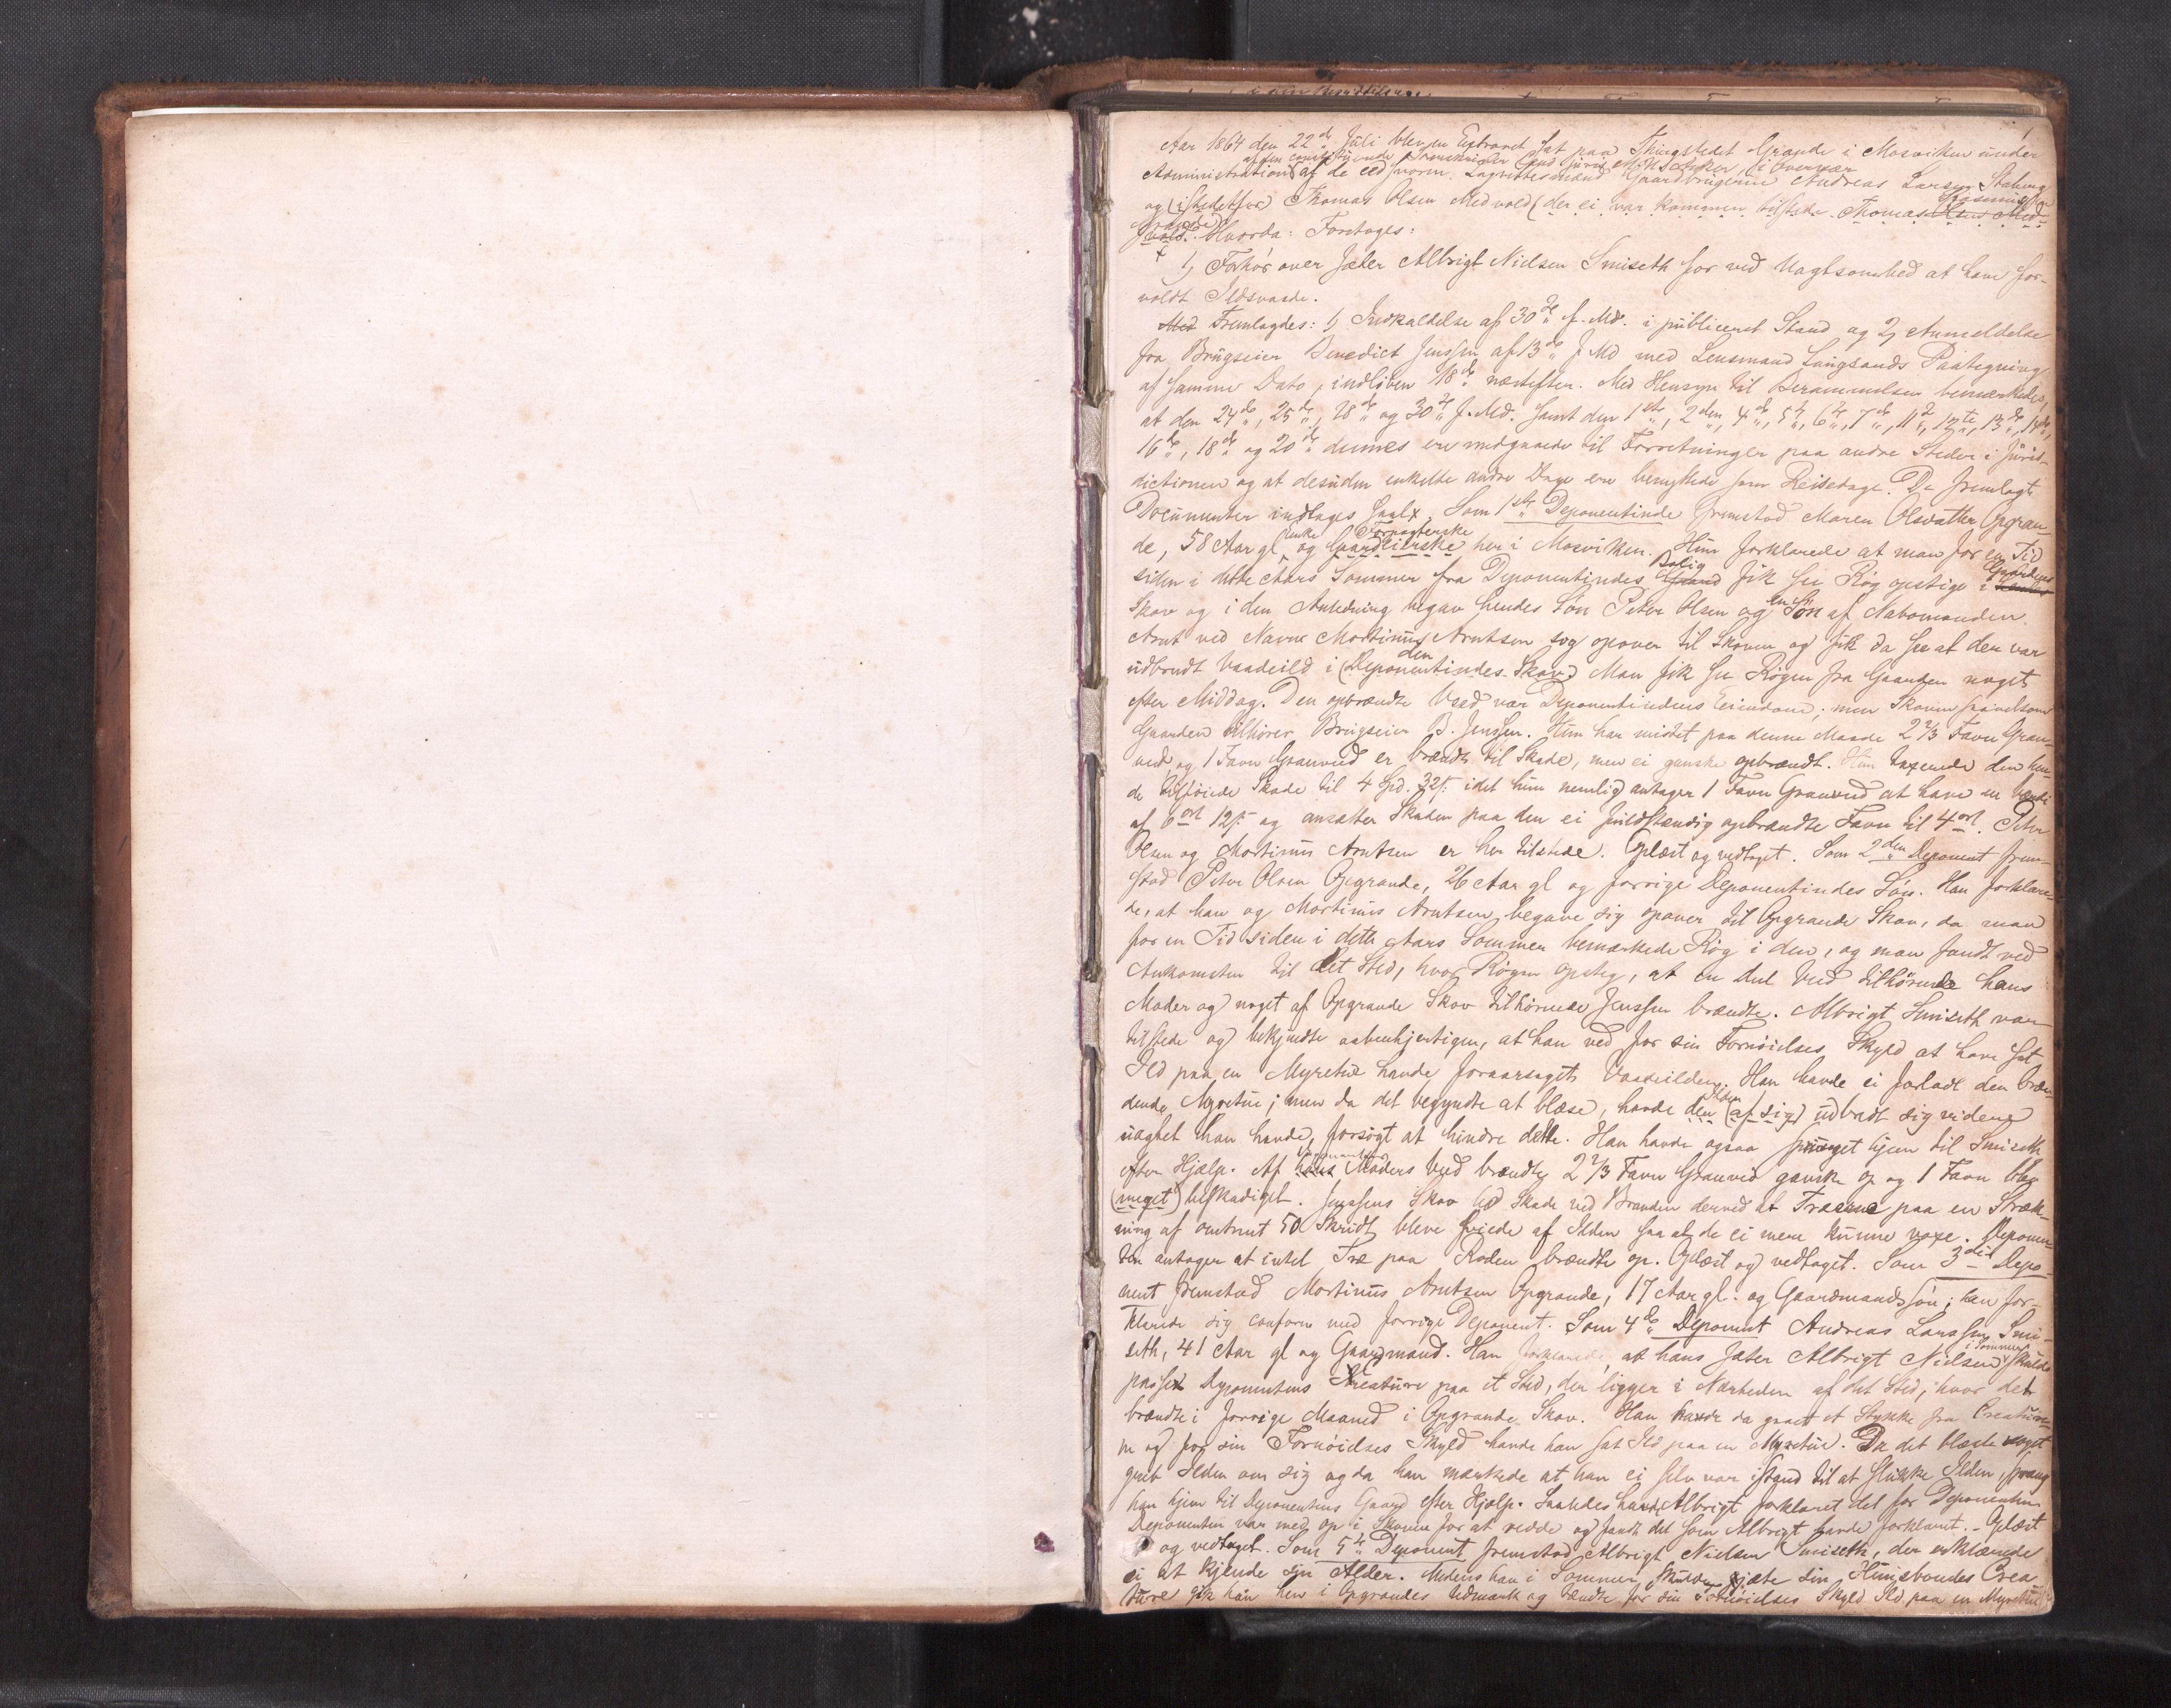 1
Aar 1864 den 22de Juli blev en Extraret sat paa Thingstedet Grande i Mosviken under
Administration af den constituerede cand juris i Overvær
af de eedsvorne Lagrettesmænd Gaardbrugerne Andreas Larsen Staberg
og (istedetfor) Thomas Olsen Medvold (der ei var kommen tilstede Thomas
Hvorda: Foretoges:
1, Forhør over Jæter Albrigt Nielsen Smiseth for ved Uagtsomhed at have for-
voldt Ildsvaade.
Med Fremlagdes: 1, Indkaldelse af 30de f. Md. i publiceret Stand og 2, Anmeldelse
fra Brugseier Benedict Jenssen af 13de f Md med Lensmand Langsands Paategning
af samme Dato, indløben 18de næstefter. Med Hensyn til Berammelsen bemærkedes,
at den 24de, 25de, 28de og 30te f. Md. samt den 1ste, 2den, 4de, 5te, 6te, 7de, 11te, 12te, 13de, 14de,
16de, 18de og 20de dennes ere medgaaede til Forretninger paa andre Steder i Juris-
dictionen og at desuden enkelte andre Dage ere benyttede som Reisedage. De fremlagte
Documenter indtages Som 1ste Deponentinde fremstod Maren Olsdatter Opgran-
de, 58 Aar gl Enke og Gaardeierske Forpagterske her i Mosviken. Hun forklarede at man for en Tid
siden i dette Aars Sommer fra Deponentindes Gaard Bolig fik see Røg opstige i Gaardens
Skov og i den Anledning begav hendes Søn Peter Olsen og en Søn af Nabomanden
Arnt ved Navn Martinus Arntsen sig opover til Skoven og fik da see at der var
udbrudt Vaadeild i (Deponentindes Skov) den Man fik see Røgen fra Gaarden noget
efter Middag. Den opbrændte Ved var Deponentindens Eiendom; men Skoven saavelsom
Gaarden tilhører Brugseier B. Jenssen. Hun har mistet paa denne Maade 2 2/3 Favn Gran-
ved og 1 Favn Granved er brændt til Skade, men ei ganske opbrændt. Hun taxerede den hen-
de tilføiede Skade til 4 Spd. 32 s. idet hun nemlig antager 1 Favn Granved at have en Værdi
af 6 ort 12 s. og ansætter Skaden paa den ei fuldstændig opbrændte Favn til 4 ort. Peter
Olsen og Martinus Arntsen er her tilstede. Oplæst og vedtaget. Som 2den Deponent frem-
stod Peter Olsen Opgrande, 26 Aar gl og forrige Deponentindes Søn. Han forklare-
de, at han og Martinus Arntsen begave sig opover til Opgrande Skov, da man
for en Tid siden i dette Aars Sommer bemærkede Røg i den, og man fandt ved
Ankomsten til det Sted, hvor Røgen opsteg, at en Deel Ved tilhørende hans
Moder og noget af Opgrande Skov tilhørende Jenssen brændte. Albrigt Smiseth var
tilstede og bekjendte aabenhjertigen, at han ved for sin Fornøielses Skyld at have sat
Ild paa en Myretue havde foraarsaget Vaadeilden. Han havde ei forladt den bræn-
dende Myretue; men da det begyndte at blæse, havde den Ilden (af sig) udbredt sig videre
uagtet han havde forsøgt at hindre dette. Han havde ogsaa sprunget hjem til Smiseth
efter Hjælp. Af hans Deponentens Moders Ved brændte 2 2/3 Favn Granved ganske op og 1 Favn blev
(meget) beskadiget. Jenssens Skov led Skade ved Branden derved at Træerne paa en Stræk-
ning af omtrent 50 Skridt bleve sviede af Ilden saa at de ei mere kunne voxe. Deponen-
ten antager at intet Træ paa Roden brændte op. Oplæst og vedtaget. Som 3die Depo-
nent fremstod Martinus Arntsen Opgrande, 17 Aar gl. og Gaardmandssøn; han for-
klarede sig conform med forrige Deponent. Som 4de Deponent Andreas Larssen Smi-
seth, 41 Aar gl og Gaardmand. Han forklarede, at hans Jæter Albrigt Nielsen i Sommer skulde
passet Deponentens Kreature paa et Sted, der ligger i Nærheden af det Sted, hvor det
brændte i forrige Maaned i Opgrande Skov. Han havde da gaaet et Stykke fra Creature-
ne og for sin Fornøielses Skyld havde han sat Ild paa en Myretue. Da det blæste noget
greb Ilden om sig og da han mærkede at han ei selv var istand til at slukke Ilden, sprang
han hjem til Deponentens Gaard efter Hjælp. Saaledes havde Albrigt forklaret det for Deponenten
Deponenten var med op i Skoven for at redde og fandt det som Albrigt havde forklaret. - Oplæst
og vedtaget. Som 5te Deponent fremstod Albrigt Nielsen Smiseth, der erklærede
ei at kjende sin Alder. Medens han i Sommer skulde gjæte sin Huusbondes Crea
ture gik han hen i Opgrandes Udmark og tændte for sin Fornøielses Skyld Ild paa en Myretue